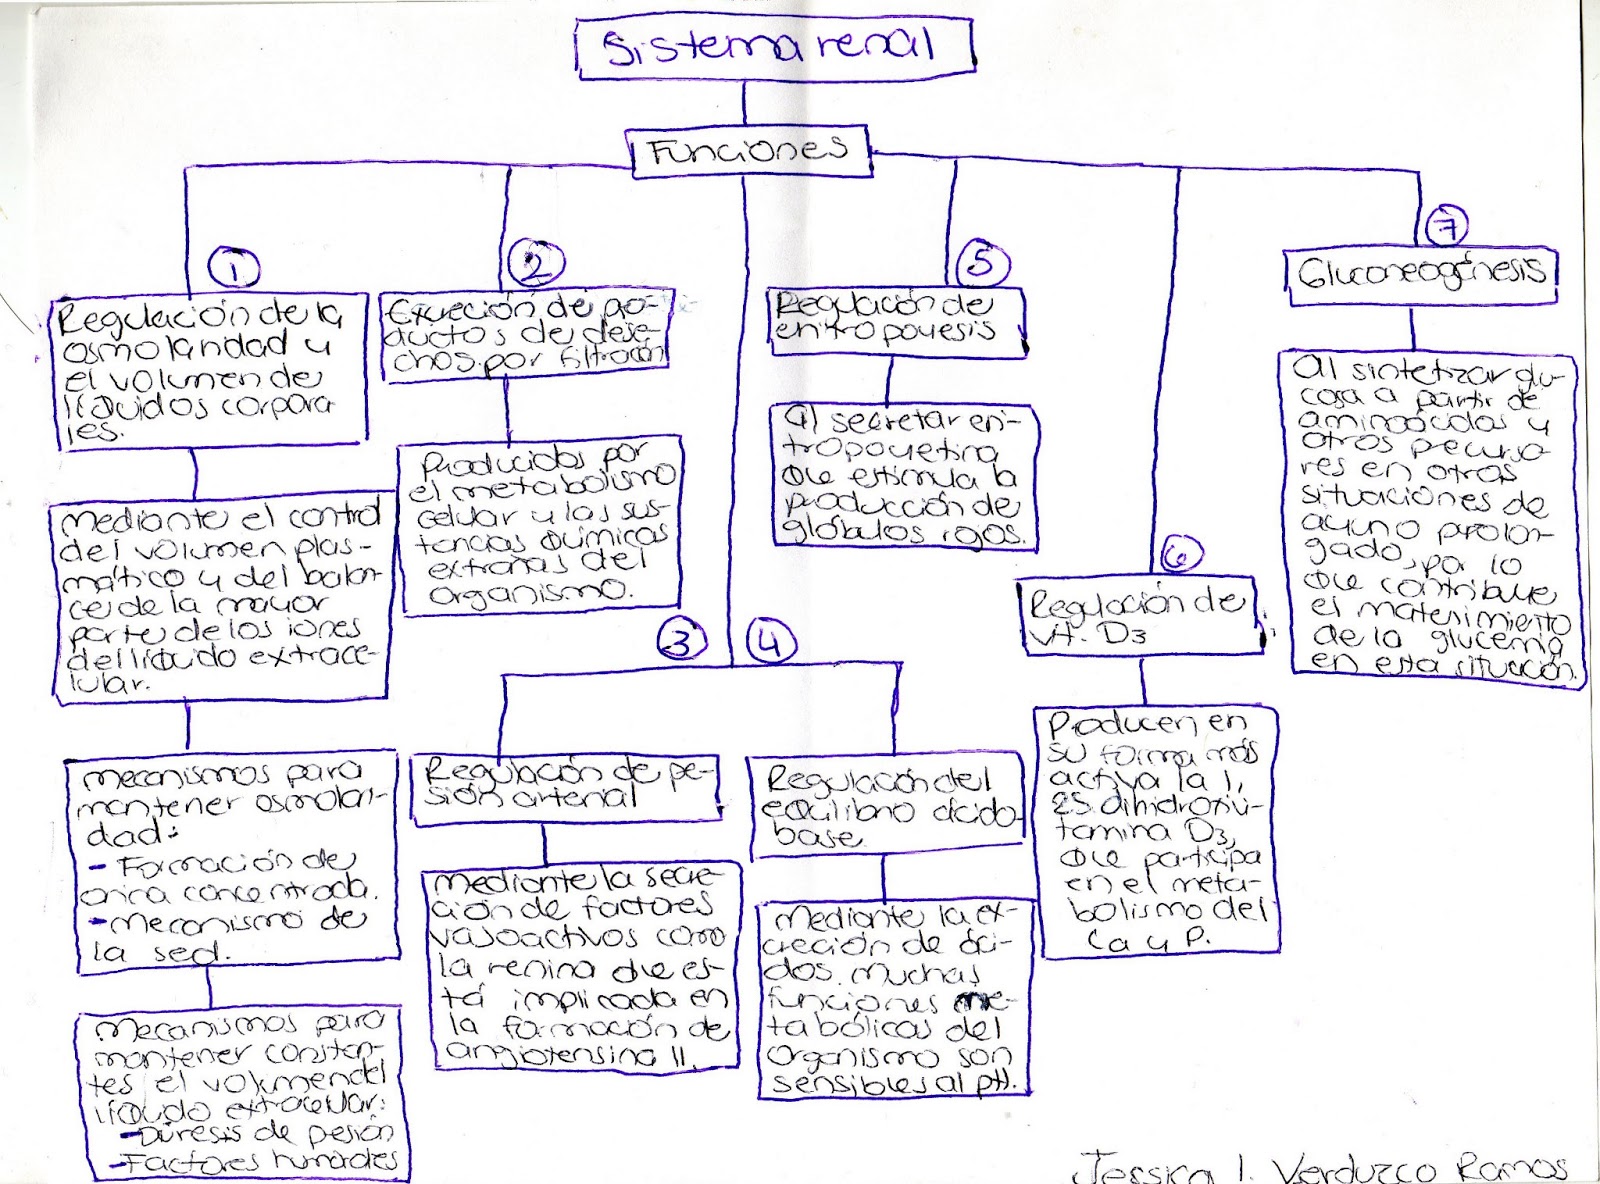 Sistema renal
Funciones
1
Regulación de la
osmolaridad y
el volumen de
líquidos corpora-
les.
Mediante el control
del volumen plas-
mático y del balan-
ce de la mayor
parte de los iones
del líquido extrace-
lular.
Mecanismos para
mantener osmolari-
dad:
- Formación de
orina concentrada.
- Mecanismo de
la sed.
Mecanismos para
mantener constan-
tes el volumen del
líquido extracelular:
- Diuresis de presión
- Factores humorales
2
Excreción de pro-
ductos de dese-
chos por filtración
Producidos por
el metabolismo
celular y las sus-
tancias químicas
extrañas del
organismo.
3
Regulación de pre-
sión arterial
Mediante la secre-
ción de factores
vasoactivos como
la renina que es-
tá implicada en
la formación de
angiotensina II.
4
Regulación del
equilibrio ácido-
base.
Mediante la ex-
creción de áci-
dos. Muchas
funciones me-
tabólicas del
organismo son
sensibles al pH.
5
Regulación de
eritropoyesis
Al secretar eri-
tropoyetina
que estimula la
producción de
glóbulos rojos.
6
Regulación de
vit. D3
Producen en
su forma más
activa la 1,
25 dihidroxivi-
tamina D3,
que participa
en el meta-
bolismo del
Ca y P.
7
Gluconeogénesis
Al sintetizar glu-
cosa a partir de
aminoácidos y
otros precurso-
res en otros
situaciones de
ayuno prolon-
gado, por lo
que contribuye
el matenimiento
de la glucemia
en esta situación.
Jessica I. Verduzco Ramos